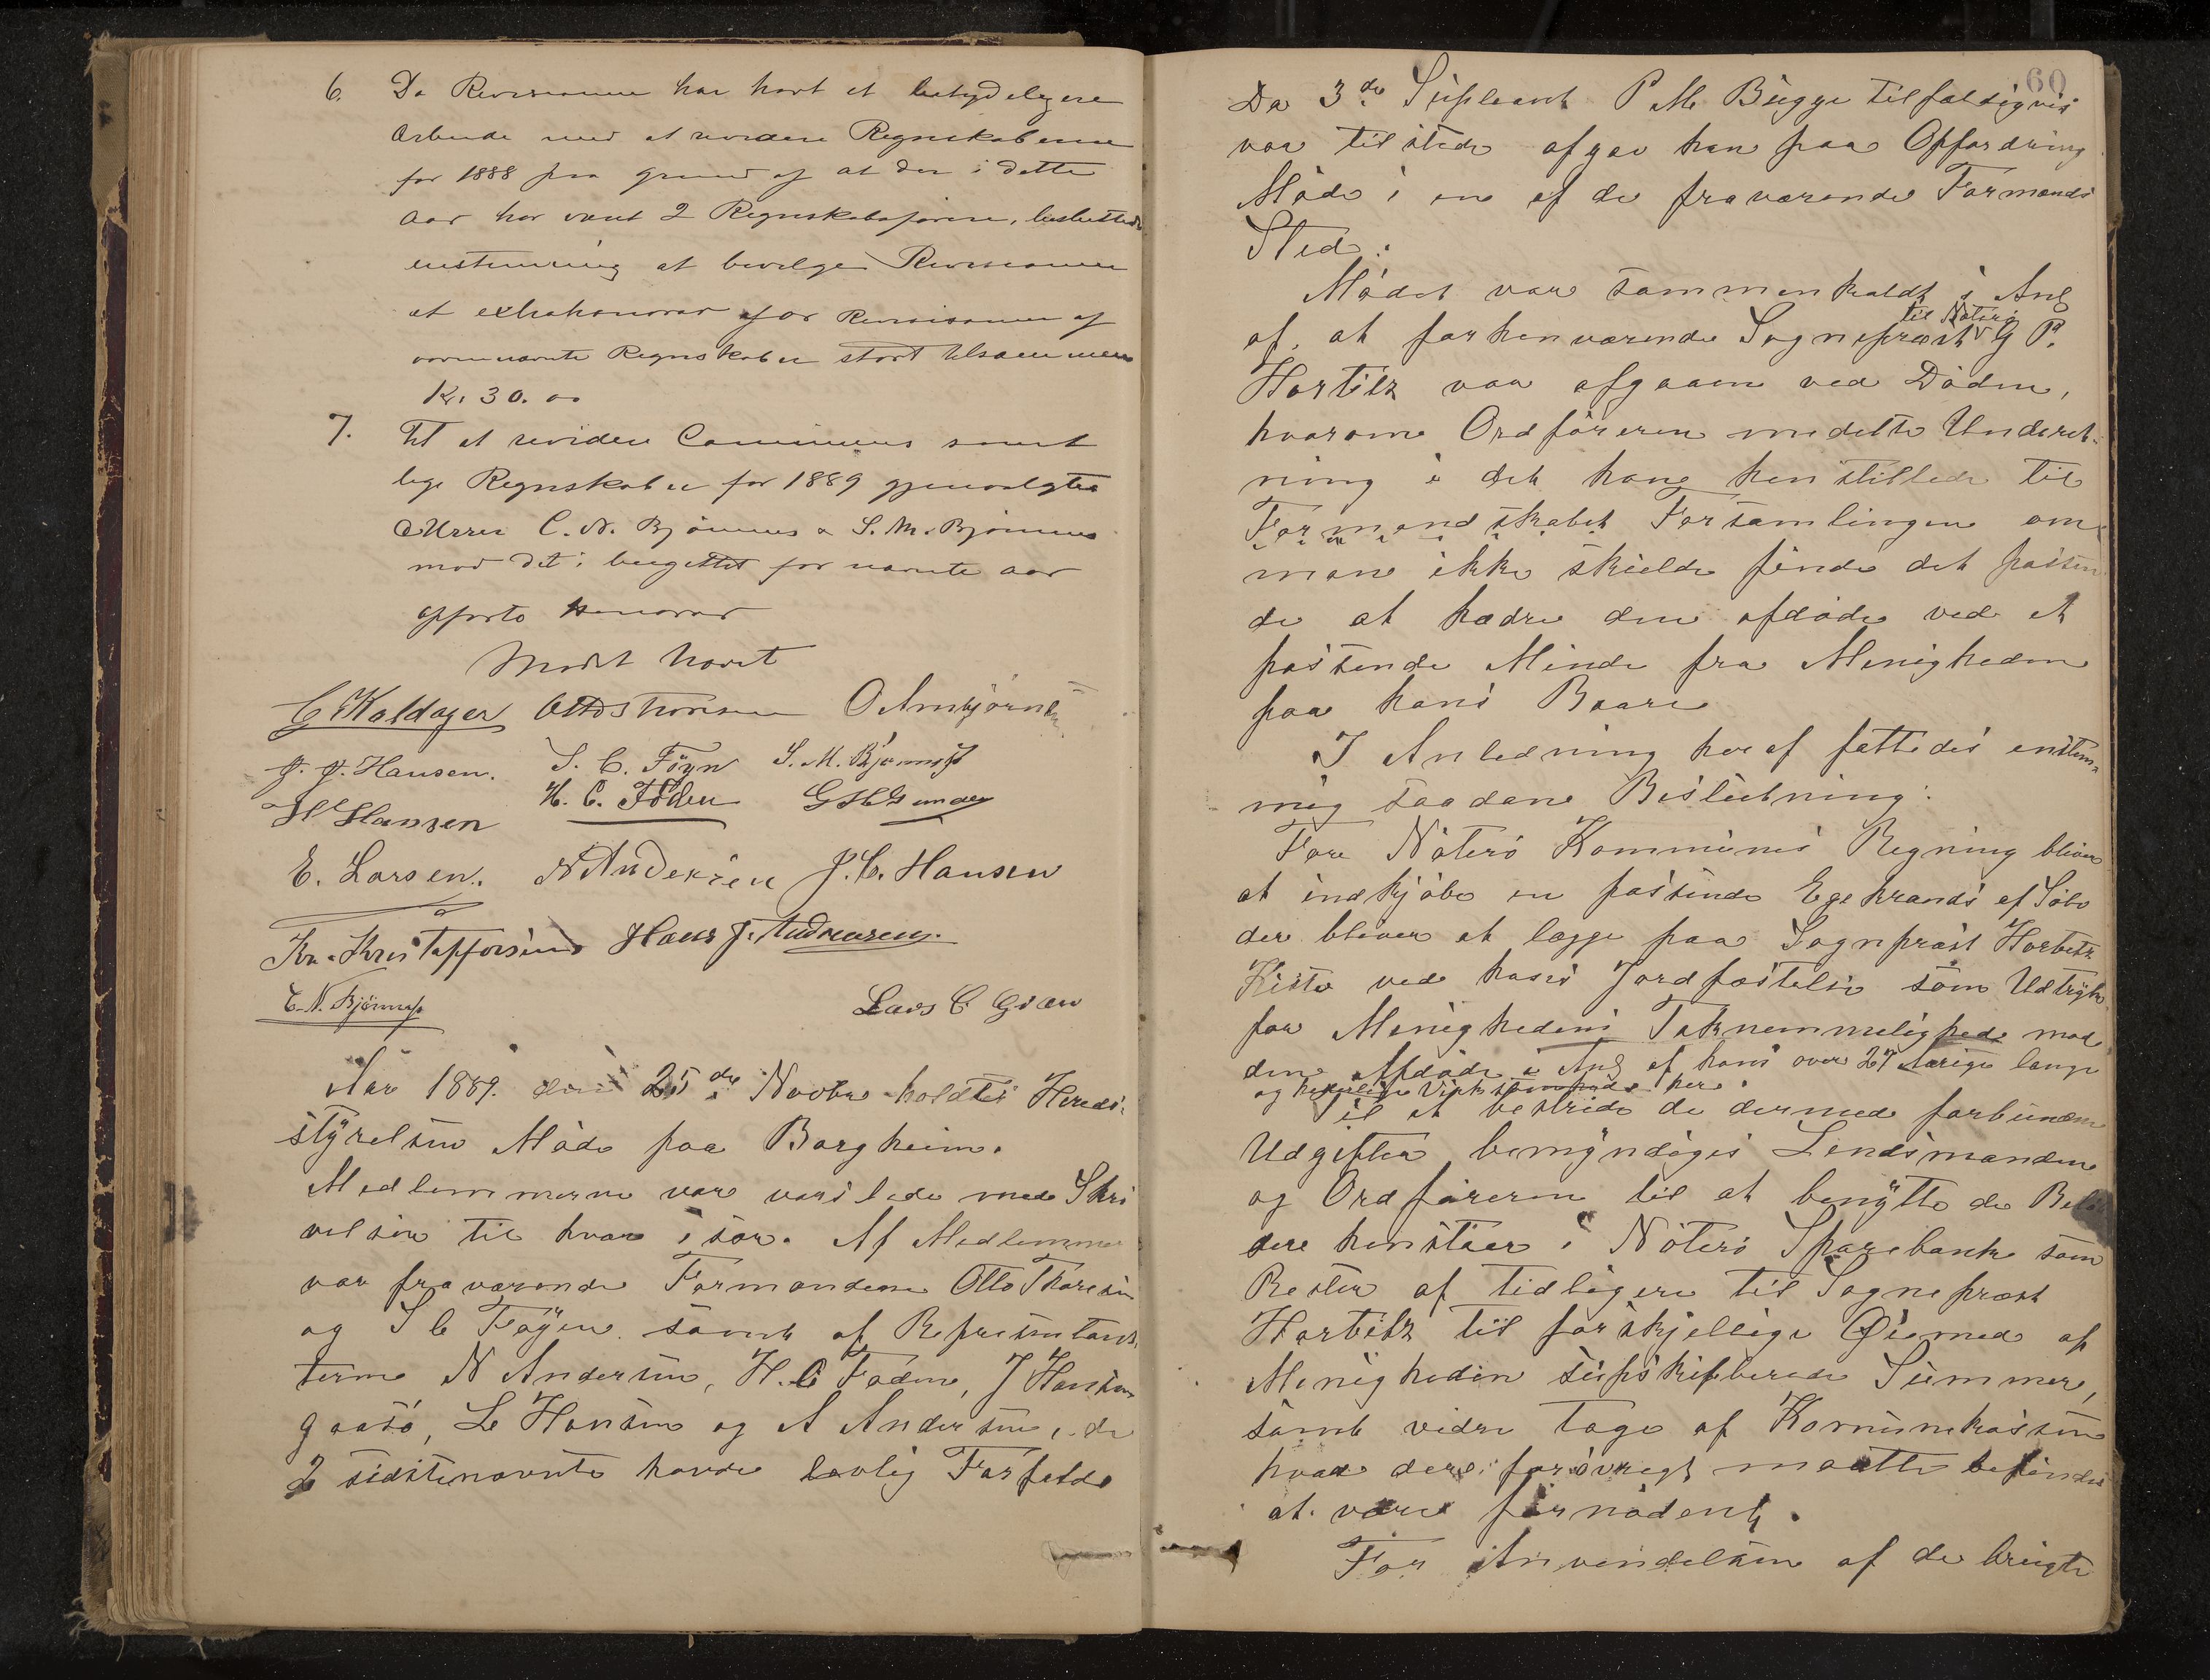 6. Da Revisorerne har havt et betydeligere
Arbeide med at revidere Regnskaberne
for 1888 paa grund af at der i dette
Aar har været 2 Regnskabsførere, besluttedes
enstemmig at bevilge Revisorerne
et extrahonorar for Revisionen af
ovennævnte Regnskaber stort tilsammen
Kr. 30.00
7. Til at revidere Communens samt
lige Regnskaber for 1889 gjenvalgtes
C. N. Bjønnes & S. M. Bjønnes
mod det i budgettet for nævnte aar
opførte honorar
Mødet hævet
C Koldager Otto Thoresen O Arnbjørnsen
J. J. Hansen. S. C. Föyn S. M. Bjønness
H Hansen H. C. Föden G H Gunder
E. Larsen. N Andersen J. C. Hansen
Kr. Kristoffersen Hans J. Andreasen.
C. N. Bjønness Lars C. Gran
Aar 1889. den 25de Novbr holdtes Hereds-
styrelsen Møde paa Borgheim.
Medlemmerne var varslede med Skri
velser til hver især. Af Medlemmer
var fraværende Formændene Otto Thoresen
og S C Føyen samt af Repræsentan-
terne N Andersen, H. C Föden, J Hansen
gaasø, L Hansen og A Andersen, de
2 sidstenævnte havde lovlig Forfald
60
Da 3die Supleant P M Bugge tilfældigvis
var tilstede afgav han paa Opfordring
Møde i en af de fraværende Formænds
Sted.
Mødet var sammenkaldt i Anl
til Nøterø
af, at forhenværende Sogneprest G P.
Hortitz var afgaaen ved Døden,
hvorom Ordføreren meddelte Underet-
ning i det han henstillede til
Formandskabet Forsamlingen om
man ikke skulde finde det passen
de at hædre den afdøde ved et
passende Minde fra Menigheden
paa hans Baare
I Anledning heraf fattedes enstem-
mig saadan Beslutning:
For Nøterø Kommunes Regning bliver
at indkjøbe en passende Egekrands af Sølv
der bliver at lægge paa Sogneprest Hortitz
Kiste ved hans Jordfæstelse som Udtryk
for Menighedens Taknemmelighed mod
den Afdøde i Anl af hans over 27 Aarige lange
og hæderlige Virksomhed her.
Til at bestride de dermed forbundne
Udgifter bemyndiges Lendsmanden
og Ordføreren til at benytte de Beløb
der henstaar i Nøterø Sparebank som
Rester af tidligere til Sogneprest
Hortitz til forskjellige Øiemed af
Menigheden supskriberede Summer,
samt videre tage af Komunekassen
hvad der forøvrigt maatte befindes
at være fornødent.
For Anvendelsen af de brugte